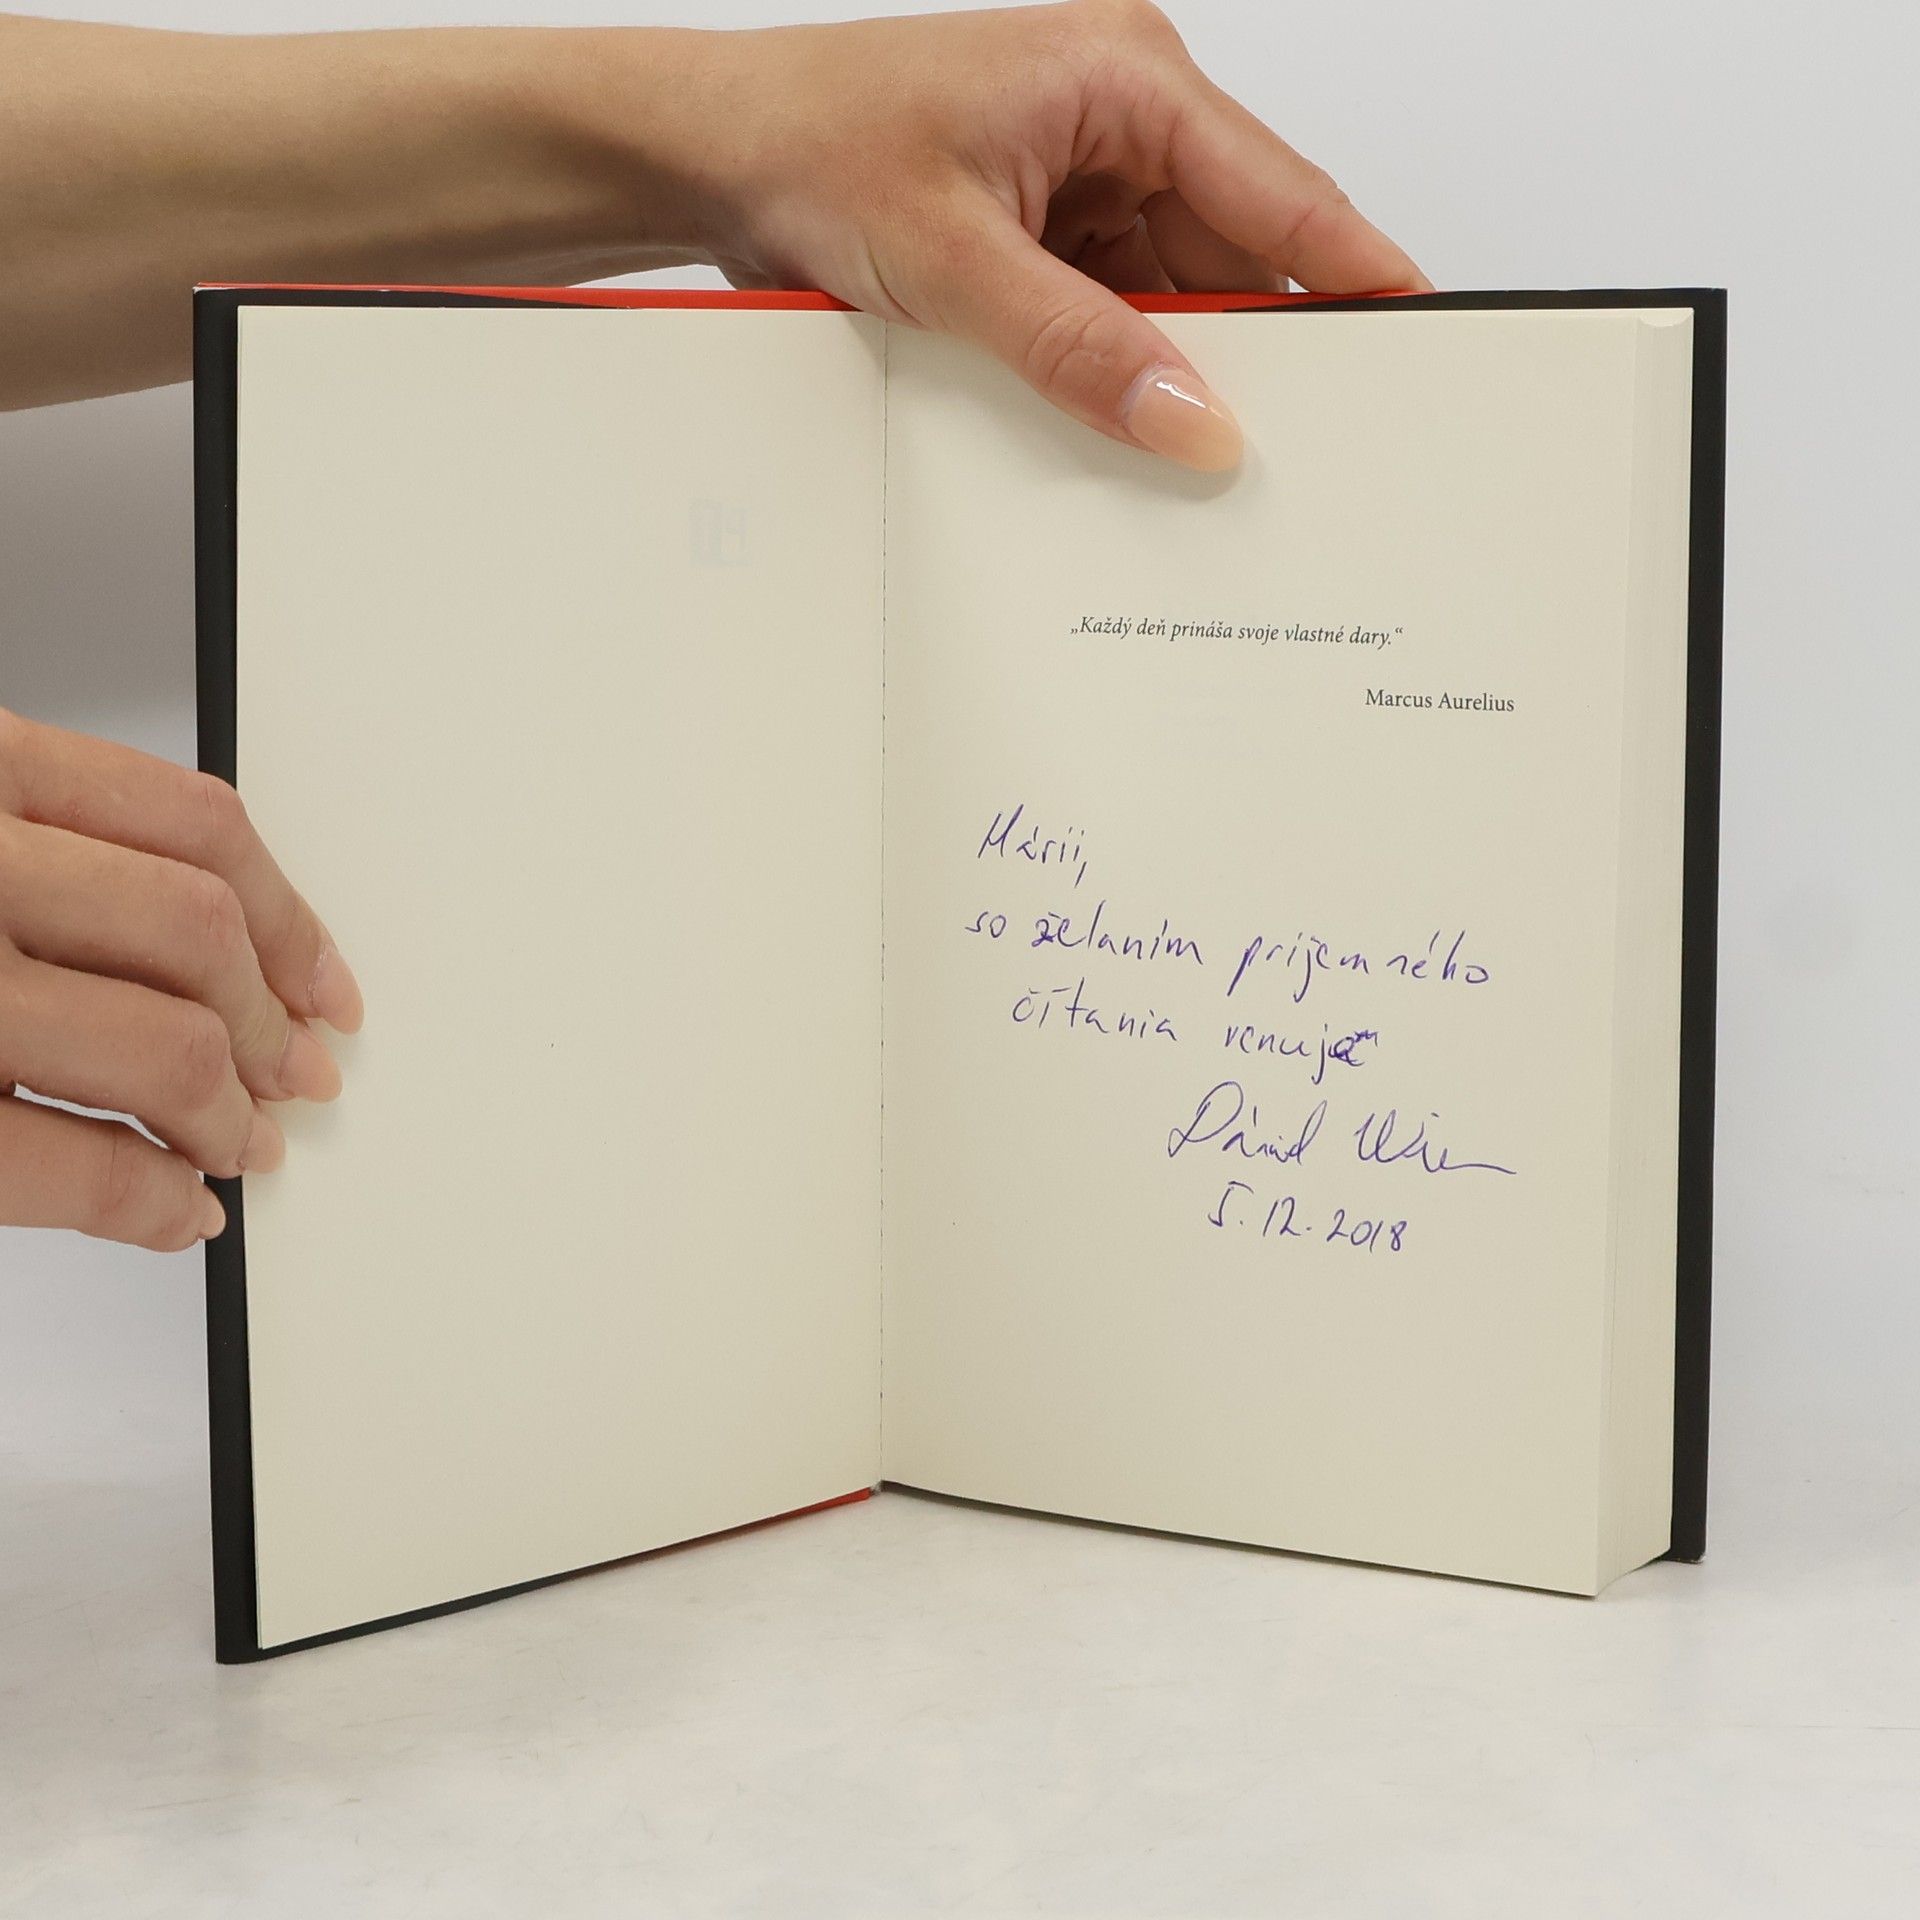 „Každý deň prináša svoje vlastné dary.“
Marcus Aurelius
Márii,
so želaním príjemného
čítania venuje
Dávid
5.12.2018